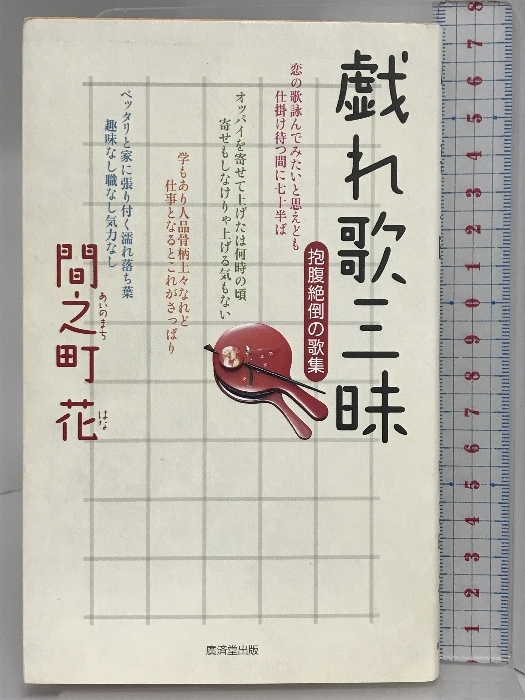 戯れ歌三昧
抱腹絶倒の歌集
恋の歌詠んでみたいと思えども
仕掛け待つ間に七十半ば
オッパイを寄せて上げたは何時の頃
寄せもしなけりゃ上げる気もない
学もあり人品骨柄上々なれど
仕事となるとこれがさっぱり
ベッタリと家に張り付く濡れ落ち葉
趣味なし職なし気力なし
間之町 花
あいのまち
はな
廣済堂出版
8
7
6
5
4
3
2
1
0
9
8
7
6
5
4
3
2
1